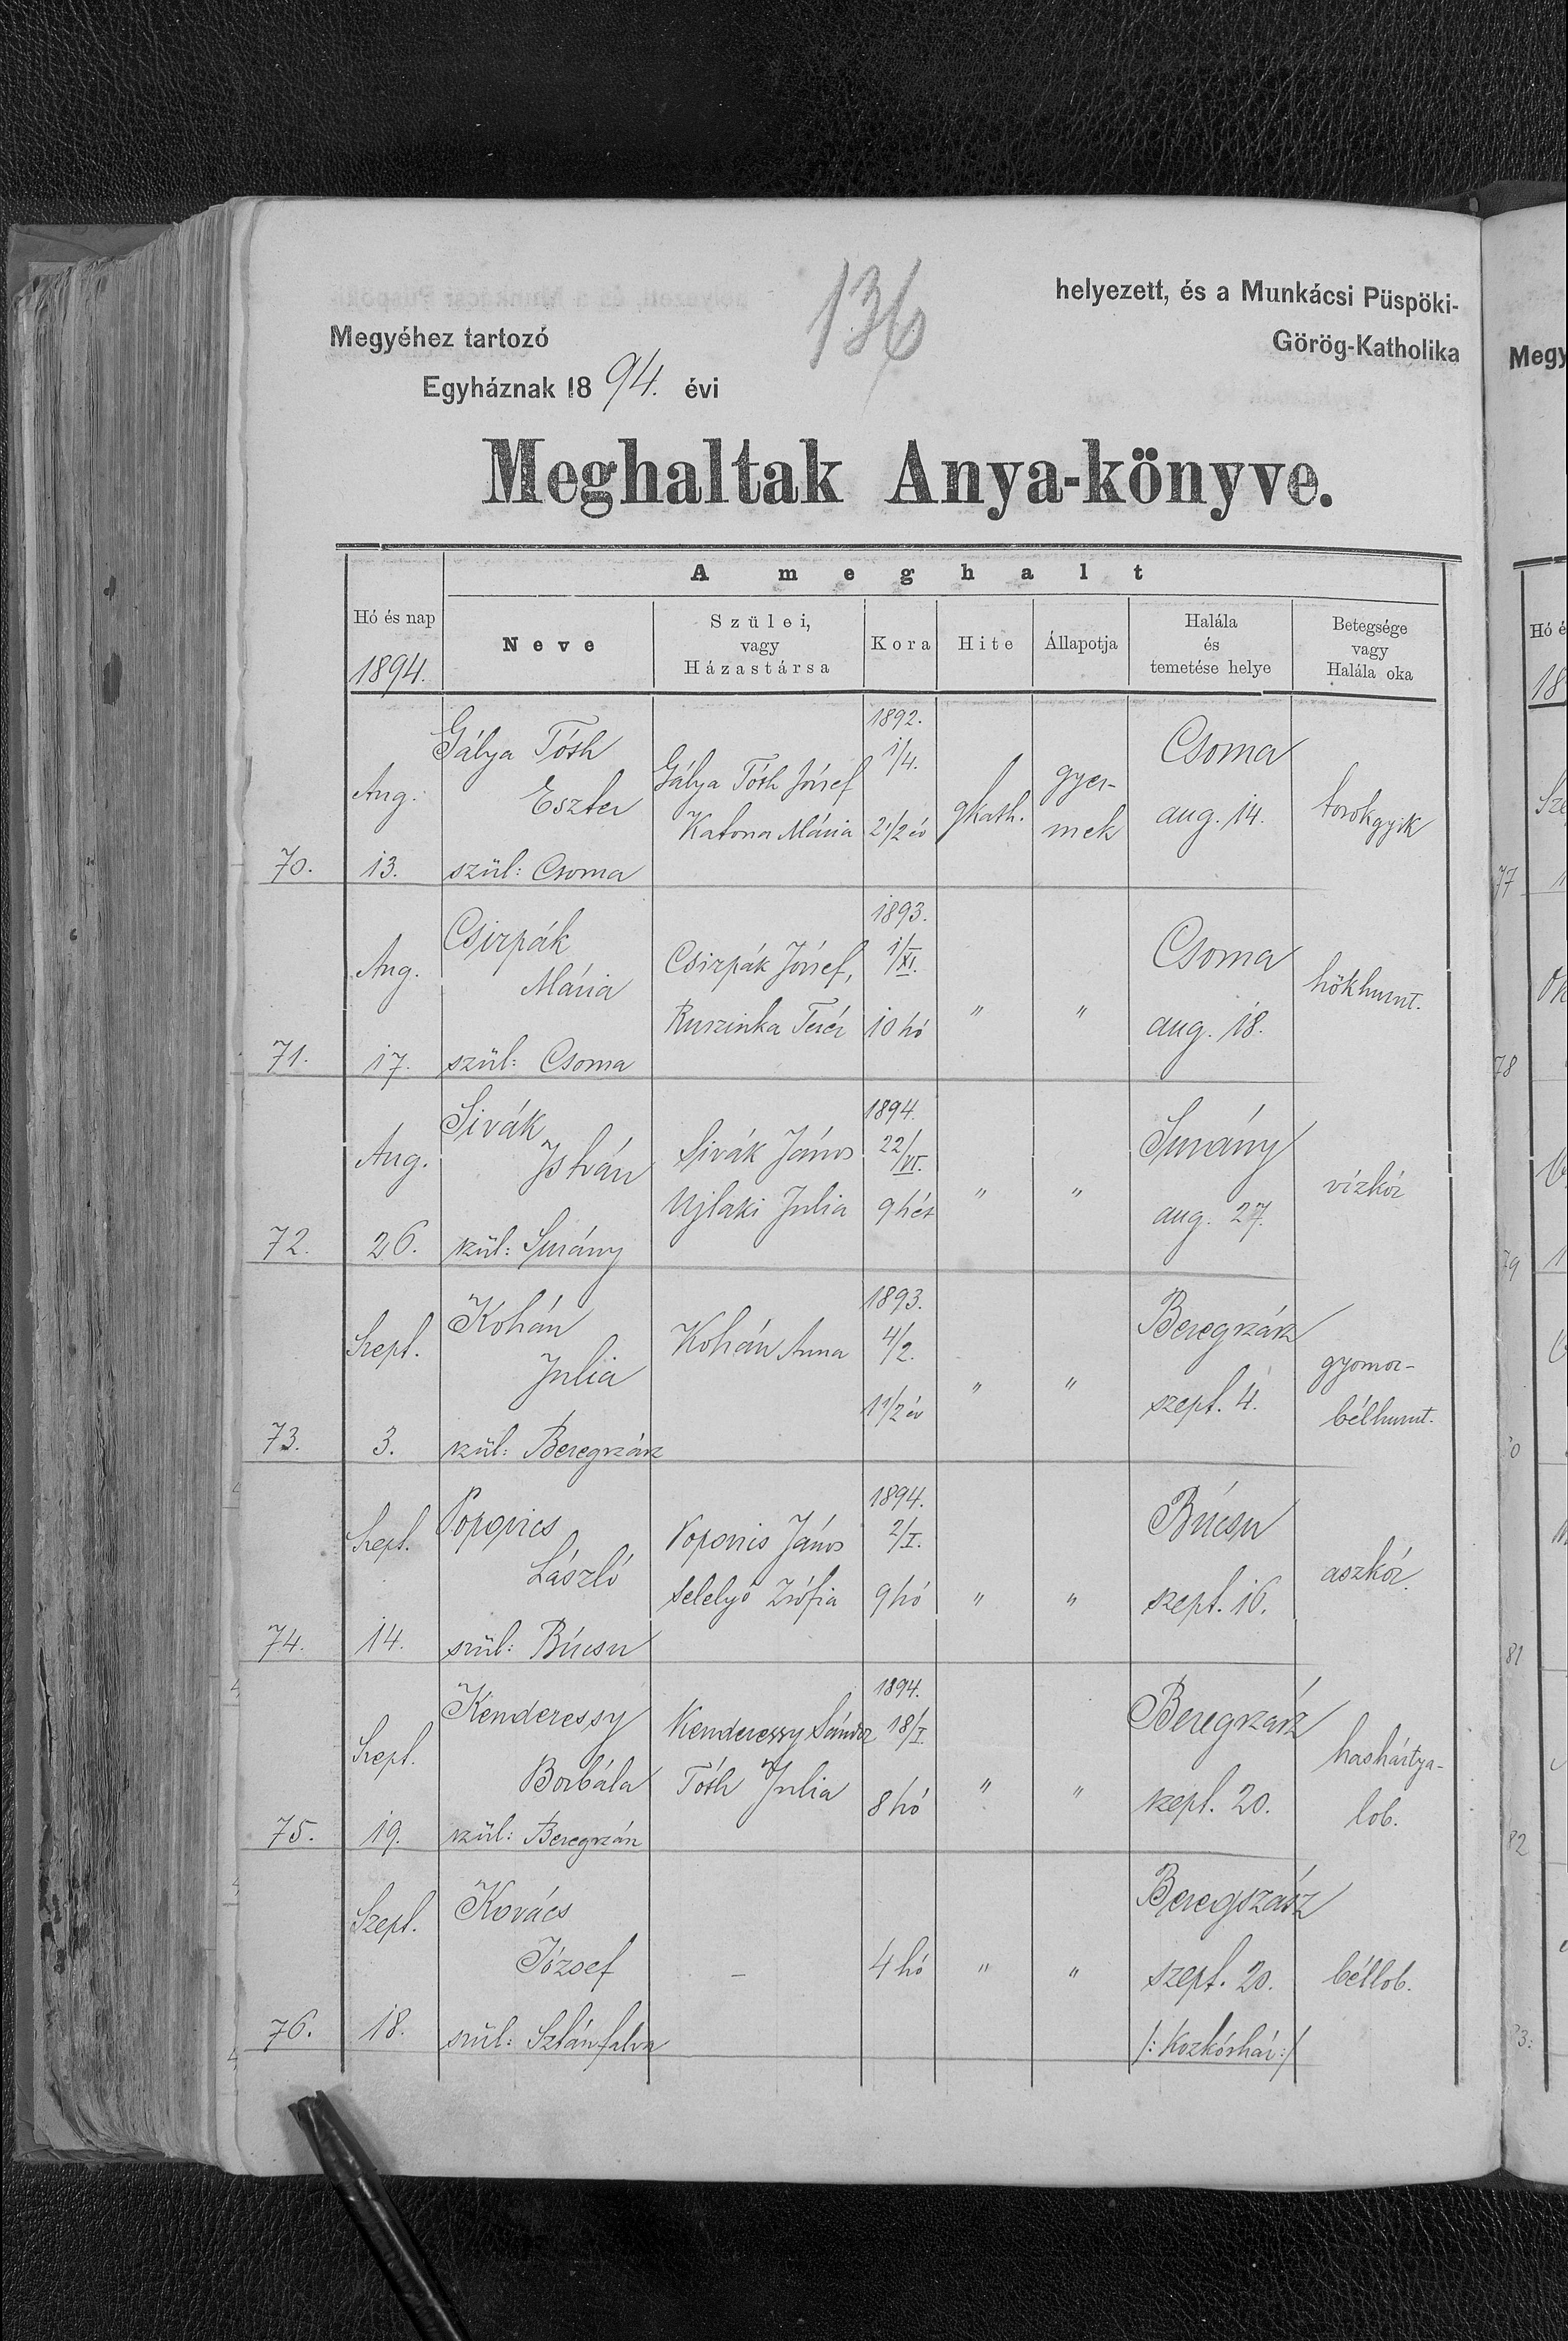 136
helyezett, és a Munkácsi Püspöki-
Megyéhez tartozó
Görög-Katholika
Egyháznak 1894. évi
Meghaltak Anya-könyve.
A meghalt
Hó és nap
1894.
Neve
Szülei,
vagy
Házastársa
Kora
Hite
Állapotja
Halála
és
temetése helye
Betegsége
vagy
Halála oka
70.
Aug.
13.
Gálya Tóth
Eszter
szül: Csoma
Gálya Tóth József
Katona Mária
1892.
1/4.
2 1/2 év
gkath.
gyer-
mek
Csoma
aug. 14.
torokgyik
71.
Aug.
17.
Csirpák
Mária
szül: Csoma
Csirpák József,
Ruszinka Teréz
1893.
1/XI.
10 hó
"
"
Csoma
aug. 18.
hökhurut.
72.
Aug.
26.
Sivák
István
szül: Surány
Sivák János
Ujlaki Julia
1894.
22/VI.
9 hét
"
"
Surány
aug. 27.
vízkór
73.
Szept.
3.
Kohán
Julia
szül: Beregszász
Kohán Anna
1893.
4/2.
1 1/2 év
"
"
Beregszász
szept. 4.
gyomor-
bélhurut.
74.
Szept.
14.
Popovics
László
szül: Búcsu
Popovics János
Selelyó Zsófia
1894.
2/I.
9 hó
"
"
Búcsu
szept. 16.
aszkór.
75.
Szept.
19.
Kenderessy
Borbála
szül: Beregszász
Kenderessy Sándor
Tóth Julia
1894.
18/I.
8 hó
"
"
Beregszász
szept. 20.
hashártya-
lob.
76.
Szept.
18.
Kovács
József
szül: Sztánfalva
–
4 hó
"
"
Beregszász
szept. 20.
/: Kozkórház :/
béllob.
Megy
Hó é
18
77
78
79
81
82